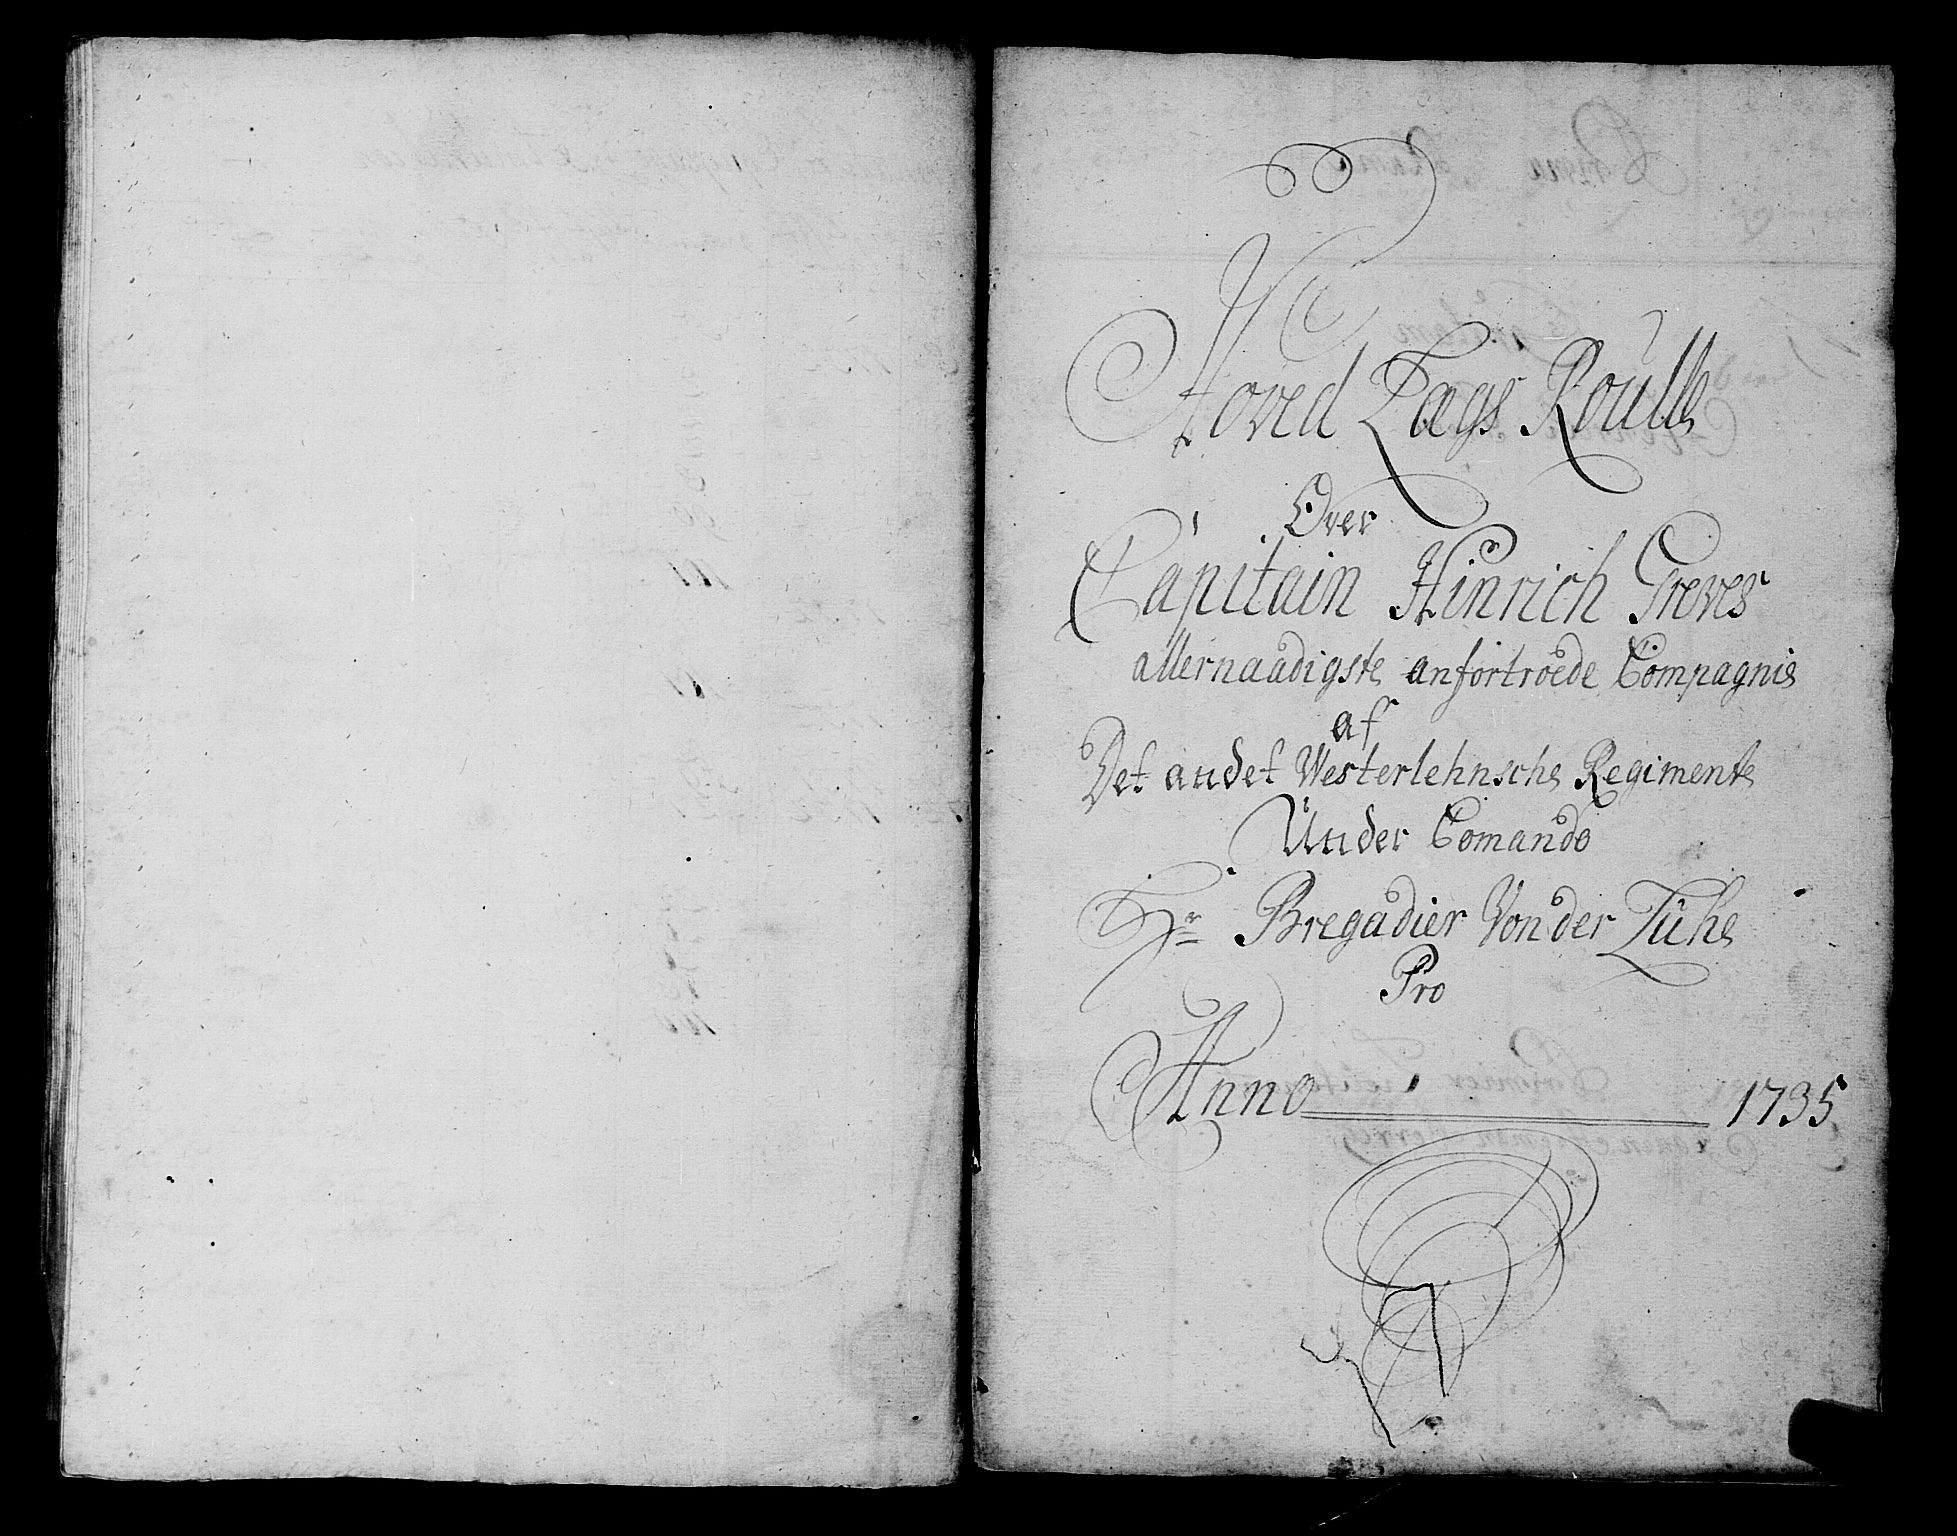 Hoved Lægs Roulle
Over
Capitain Hinrich Greves
allernaadigste anfortroede Compagnie
af
Det andet Westerlehnsche Regimente
Under Comando
Hr Bregadier Von der Lühe
Pro
Anno 1735